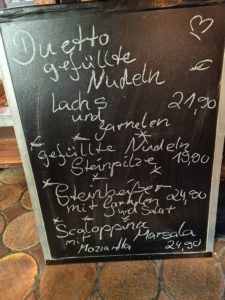 Duetto
gefüllte
Nudeln €
Lachs 21,90
und
Garnelen
gefüllte Nudeln
Steinpilze 19,90
Steinbeißer
mit Garnelen 24,90
und Salat
Scaloppina
mit Marsala
24,90